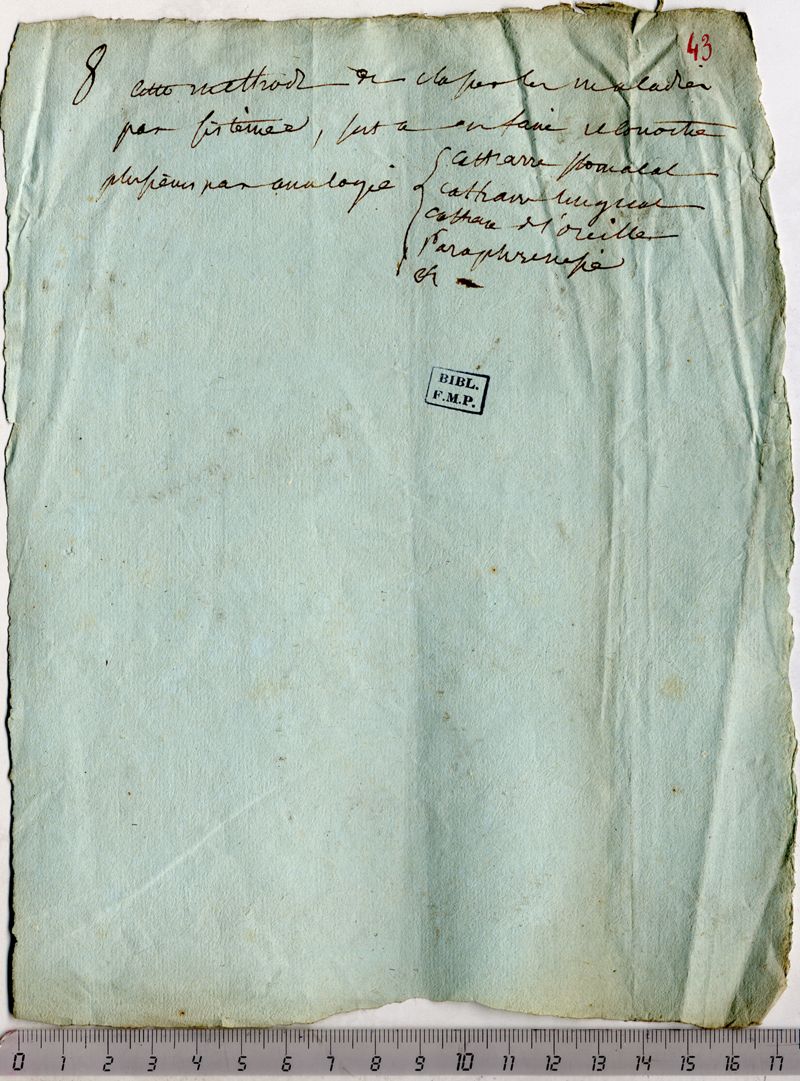 43
8 cette methode de classer les maladies
par sistemes, sert a en faire reconnoitre
plusieurs par analogie
catharre stomacal
catharre
catharre de l'oreille
Paraphrenesie
&c
BIBL.
F.M.P.
0 1 2 3 4 5 6 7 8 9 10 11 12 13 14 15 16 17